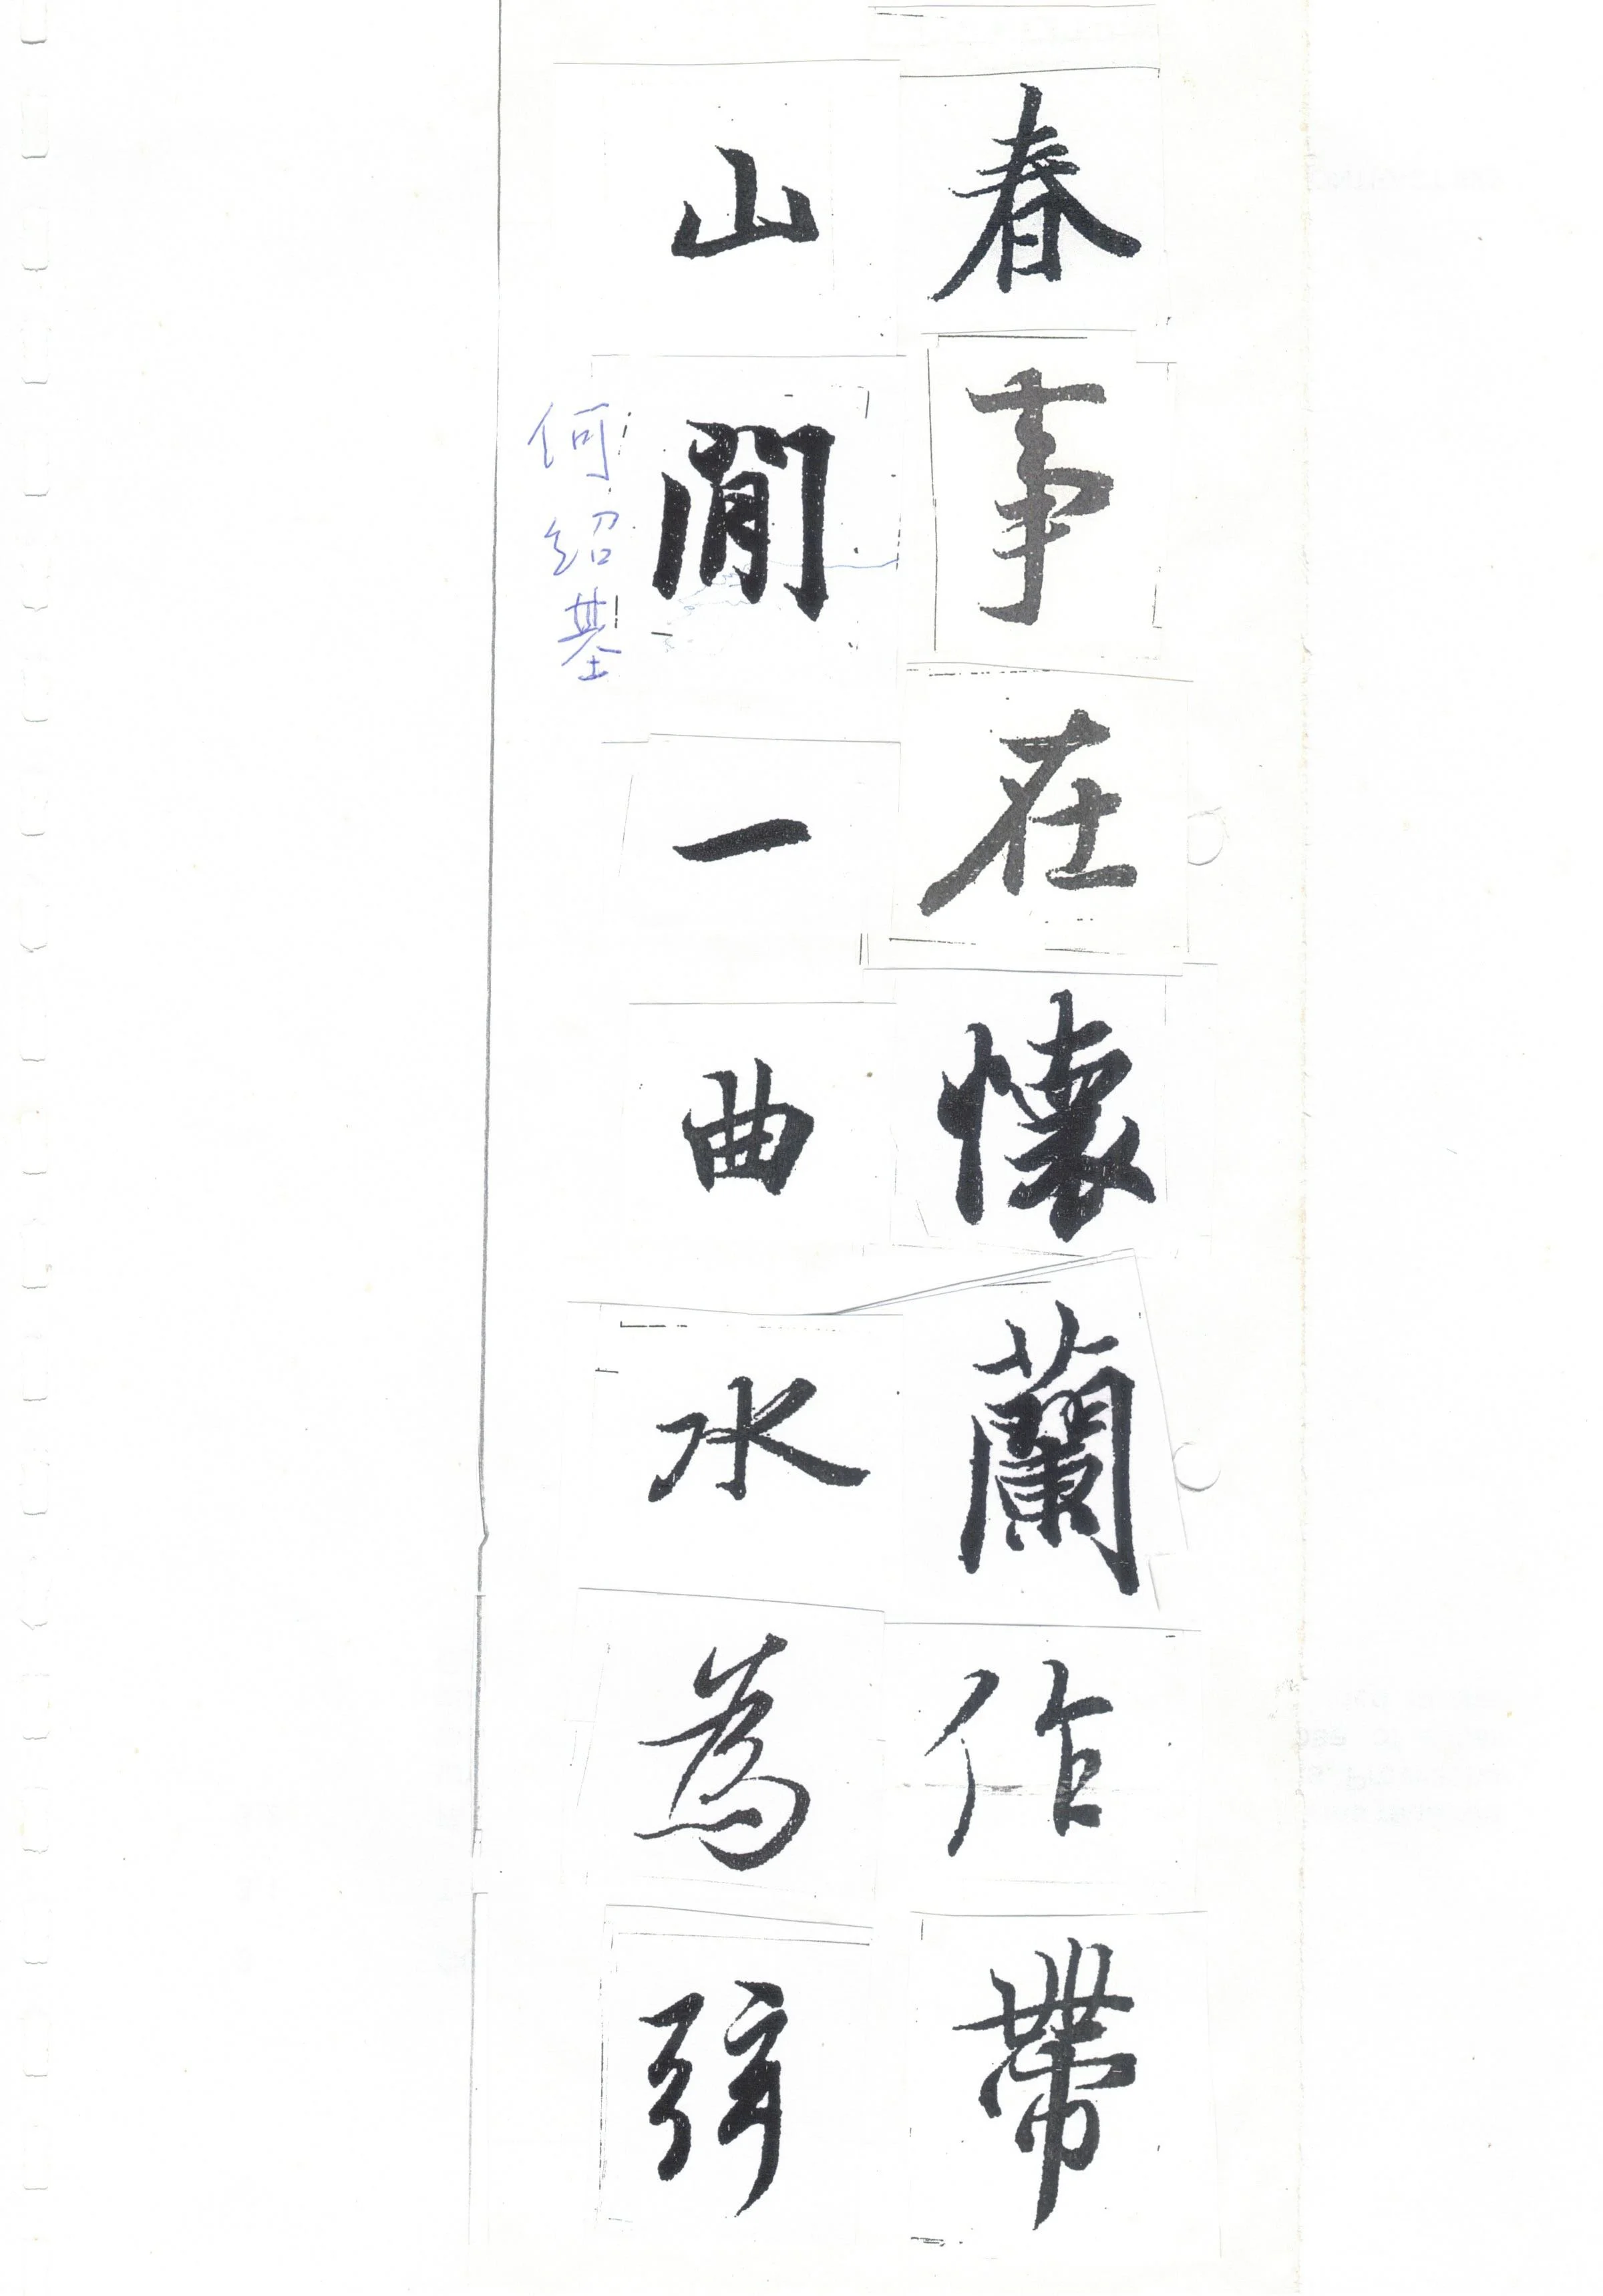 春事在懷蘭作帶
山閒一曲水為弦
何紹基